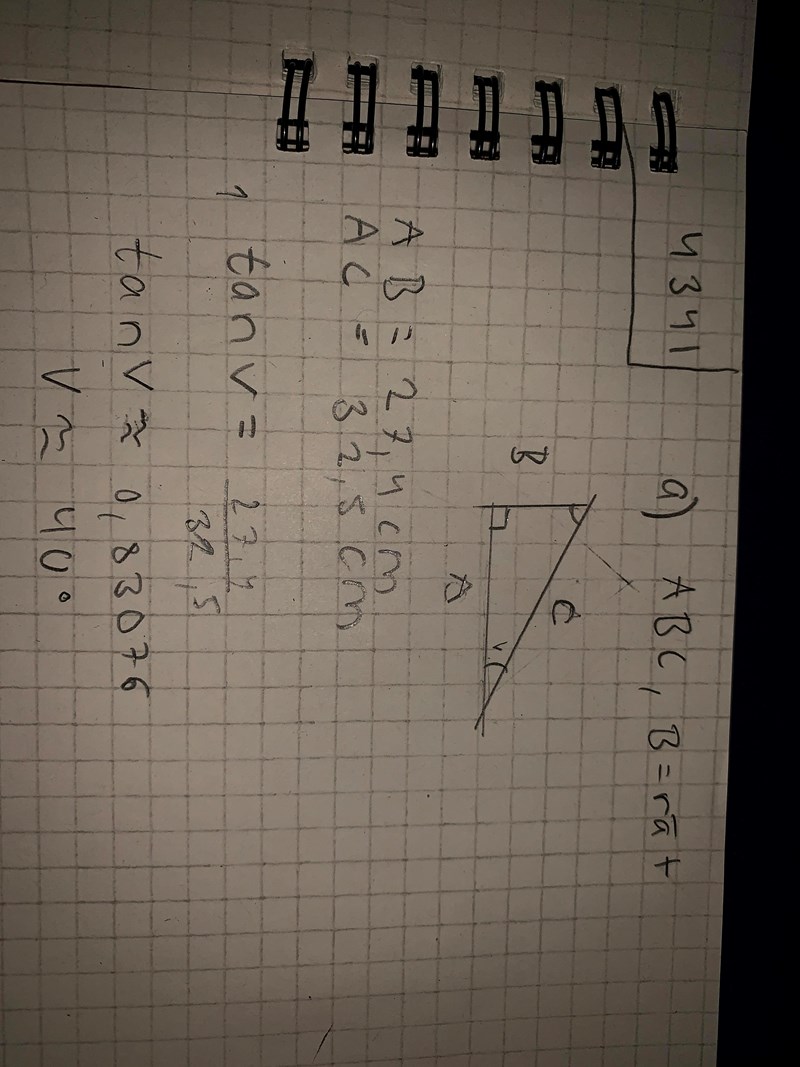 4341
a) ABC, B = rät
B
C
A
v
AB = 27,4 cm
AC = 32,5 cm
1 tan v = 27,4
32,5
tan v ≈ 0,83076
v ≈ 40°